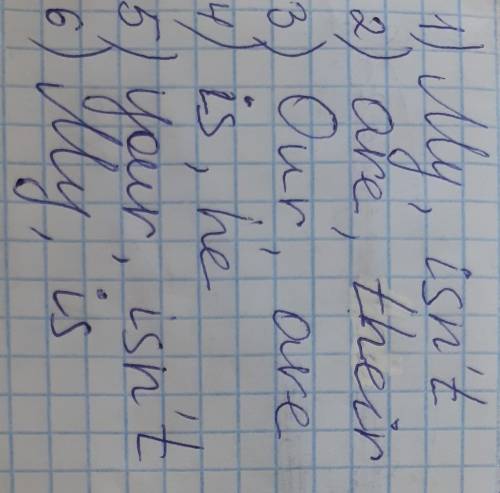 1) My, isn't
2) are, their
3) Our, are
4) is, he
5) your, isn't
6) My, is